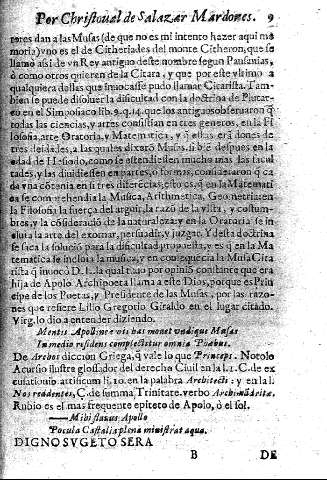 Por Christoual de Salazar Mardones. 9
rares dan a las Musas (de que no es mi intento hazer aqui me
moria) vno es el de Citheriades del monte Citheron, que se
llamò assi de vn Rey antiguo deste nombre segun Pausanias,
ò como otros quieren de la Citara, y que por este vltimo a
qualquiera dellas que inuocasse pudo llamar Citarista. Tam
bien se puede dissoluer la dificultad con la doctrina de Plutar-
co en el Simposiaco lib. 9. q. 14. que los antiguos obseruaron q̃
todas las ciencias, y artes consistian en tres generos, en la Fi
losofia, arte Oratoria, y Matematica, y q̃ ellas erã dones de
tres deidades, a las quales dixerõ Musas, si bẽ despues en la
edad de Hesiodo, como se estendiessen mucho mas las facul
tades, y las diuidiessen en partes, o formas, consideraron q̃ ca
da vna cõtenia en si tres diferẽcias, esto es, q̃ en la Matemati
ca se comprehendia la Musica, Arismetica, Geometria: en
la Filosofia la fuerça del arguir, la razõ de la vista, y costum-
bres, y la cõsideraciõ de la naturaleza: y en la Oratoria se in
cluia la arte del exornar, persuadir, y juzgar. Y desta doctrina
se saca la soluciõ para la dificultad propuesta, y es q̃ en la Ma
tematica se incluia la musica, y en consequẽcia la Musa Cita
rista q̃ inuocò D. L. la qual tuuo por opiniõ constante que era
hija de Apolo Archipoeta llama a este Dios, porque es Prin
cipe de los Poetas, y Presidente de las Musas, por las razo
nes que refiere Lilio Gregorio Giraldo en el lugar citado.
Virg. lo dio a entender diziendo.
Mentis Apollineæ vis has mouet vndique Musas
In medio residens complectitur omnia Phœbus.
De Archos diccion Griega, q̃ vale lo que Princeps. Notolo
Acursio ilustre glossador del derecho Ciuil en la l. 1. C. de ex
cusationib. artificum li. 10. en la palabra Architecti: y en la l.
Nos reddentes, C. de summa Trinitate. verbo Archimãdritæ.
Rubio es el mas frequente epiteto de Apolo, ò el sol.
——Mihi flauus Apollo
Pocula Castalia plena ministrat aqua.
DIGNO SVGETO SERA
B DE